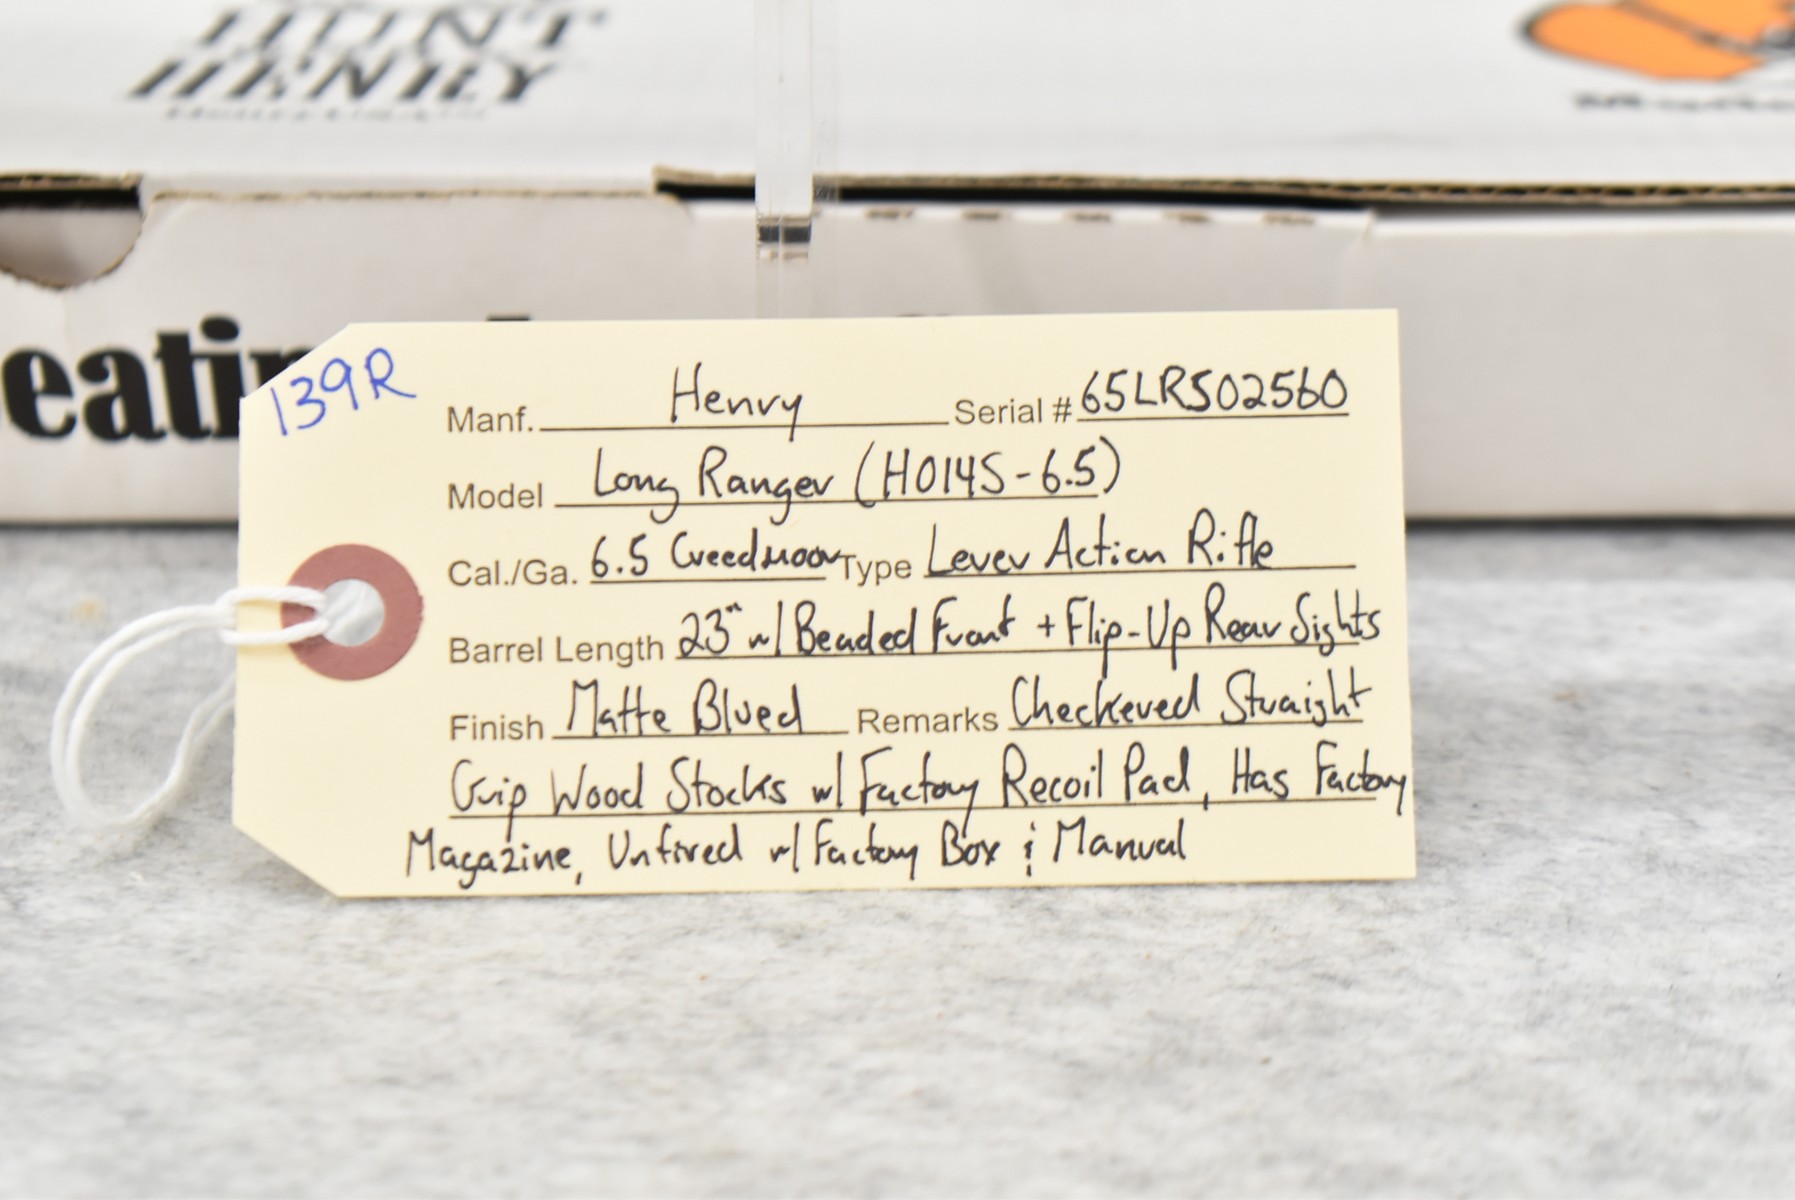 HUNT
HENRY
eatin
139R
Manf. Henry Serial # 65LRS02560
Model Long Ranger (H014S-6.5)
Cal./Ga. 6.5 Creedmoor Type Lever Action Rifle
Barrel Length 23" w/ Beaded Front + Flip-Up Rear Sights
Finish Matte Blued Remarks Checkered Straight
Grip Wood Stocks w/ Factory Recoil Pad, Has Factory
Magazine, Unfired w/ Factory Box & Manual